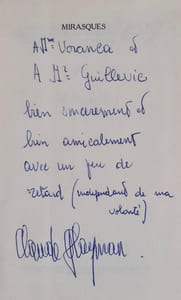 MIRASQUES
A Mme Voranca et
A Mr. Guillevic
bien sincèrement et
bien amicalement
avec un peu de
retard (indépendant de ma
volonté)
Claude Hayman.